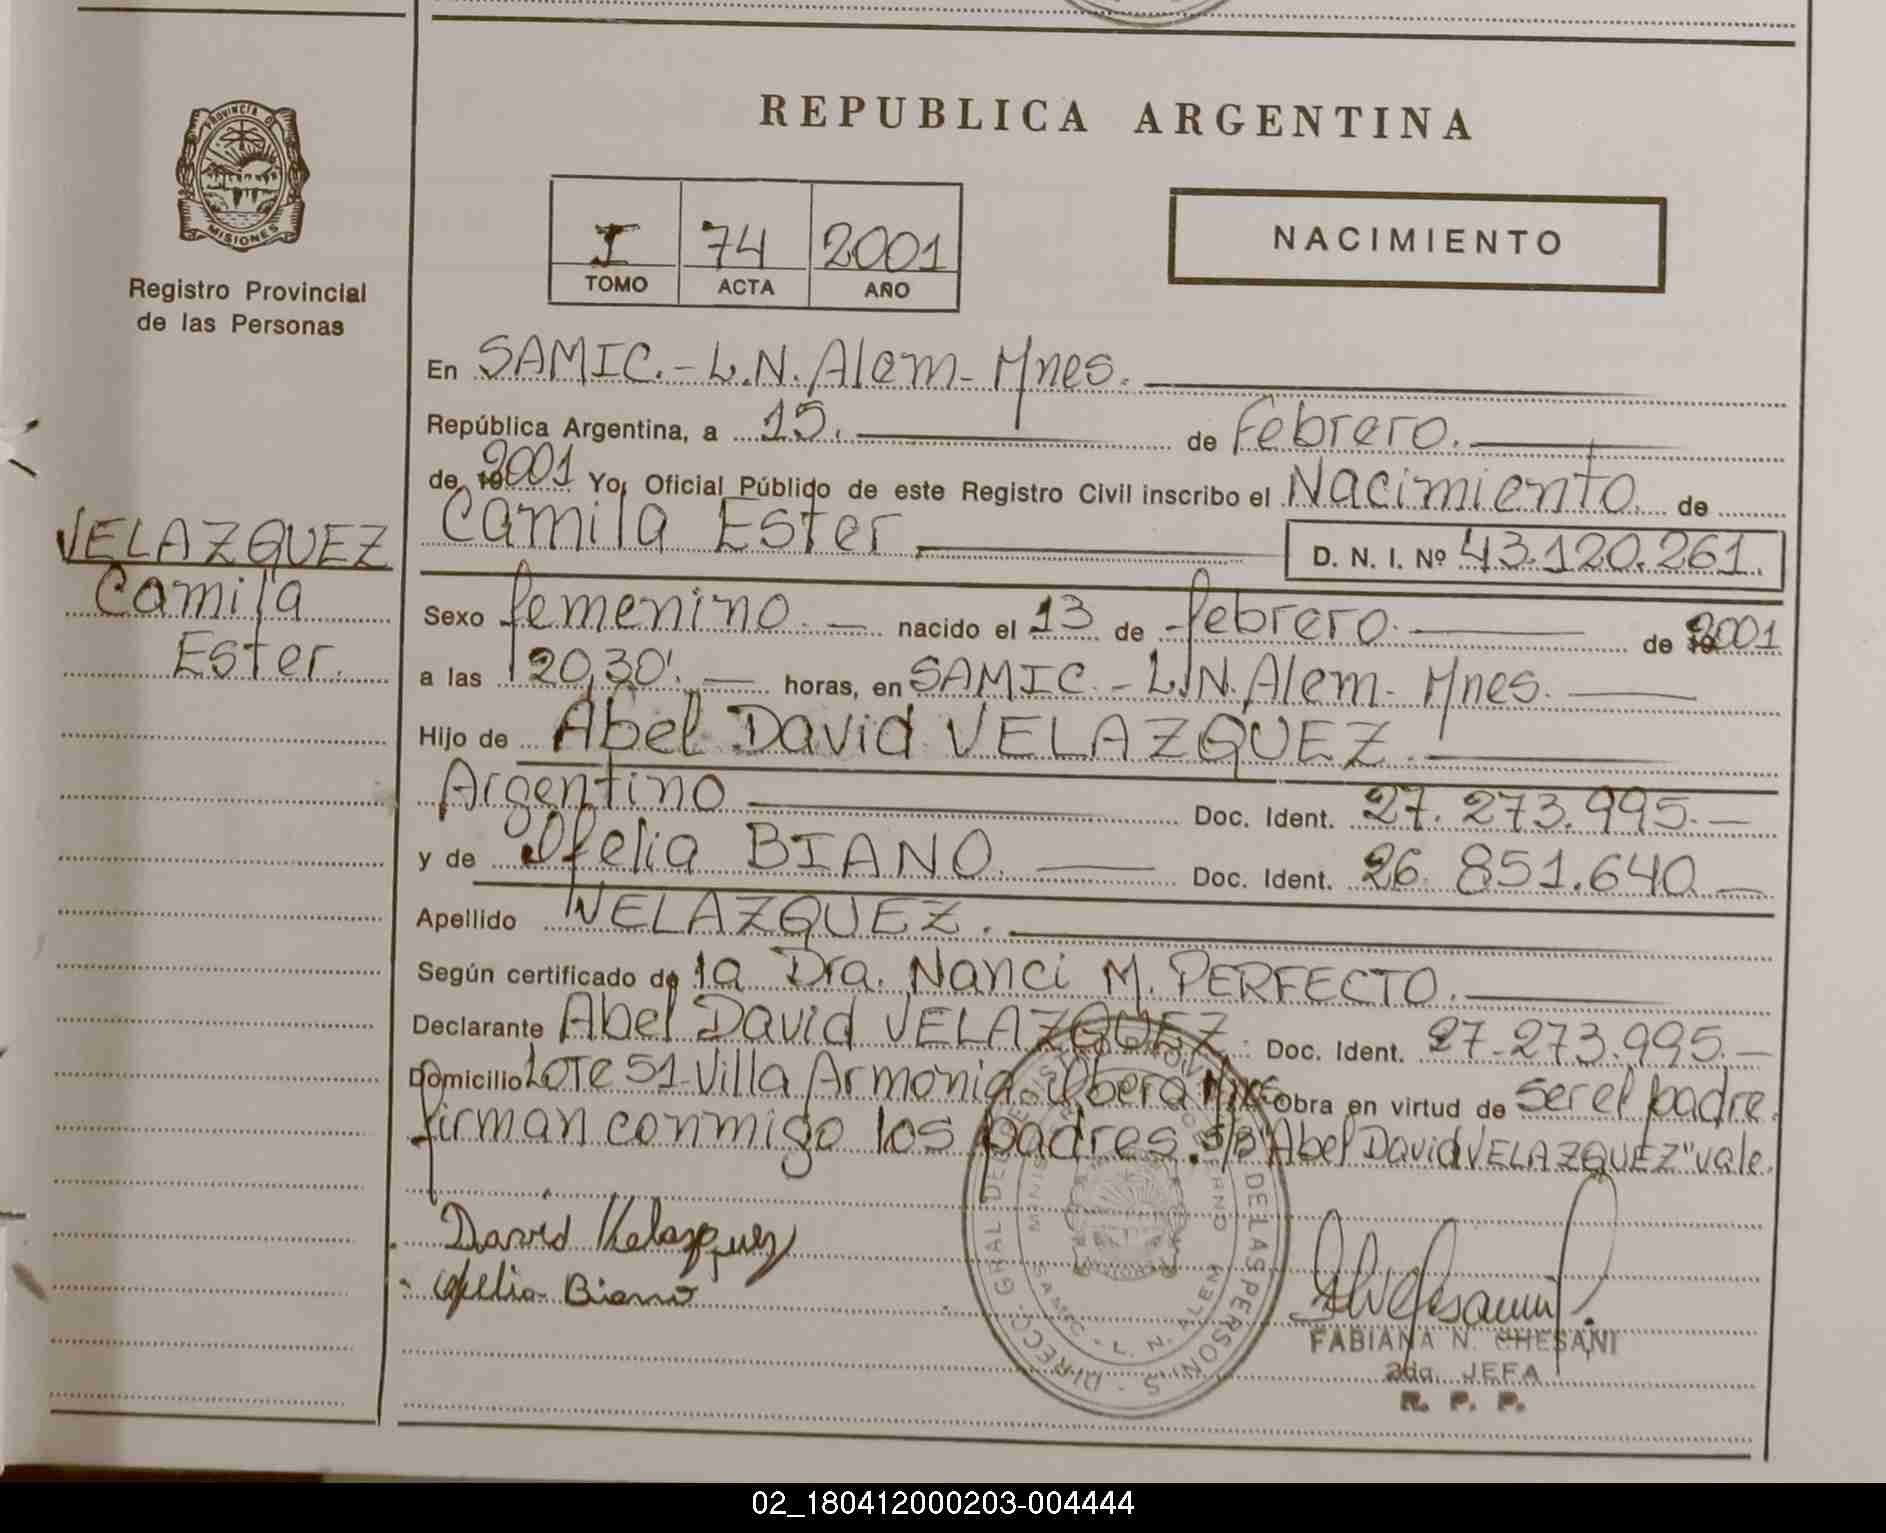 PROVINCIA DE
MISIONES
Registro Provincial
de las Personas
VELAZQUEZ
Camila
Ester.
REPUBLICA ARGENTINA
I 74 2001
TOMO ACTA AÑO
NACIMIENTO
En SAMIC.- L.N. Alem- Mnes.
República Argentina, a 15. de Febrero.
de 19 2001 Yo, Oficial Público de este Registro Civil inscribo el Nacimiento. de
Camila Ester
D. N. I. Nº 43.120.261.
Sexo femenino. nacido el 13 de febrero. de 19 2001
a las 20,30'. horas, en SAMIC.- L.N. Alem- Mnes.
Hijo de Abel David VELAZQUEZ.
Argentino Doc. Ident. 27.273.995.-
y de Ofelia BIANO. Doc. Ident. 26.851.640.-
Apellido VELAZQUEZ.
Según certificado de la Dra. Nanci M. PERFECTO.
Declarante Abel David VELAZQUEZ. Doc. Ident. 27.273.995.-
Domicilio Lote 51-Villa Armonia. Obera Mnes Obra en virtud de ser el padre.
firman conmigo los padres. S/B "Abel David VELAZQUEZ" vale.
David Velazquez
Ofelia Biano
DIRECC. GRAL DE DE LAS PERSONAS
SAMIC - L. N. ALEM
MISIONES
FABIANA N. CHESANI
2da. JEFA
R. P. P.
02_180412000203-004444